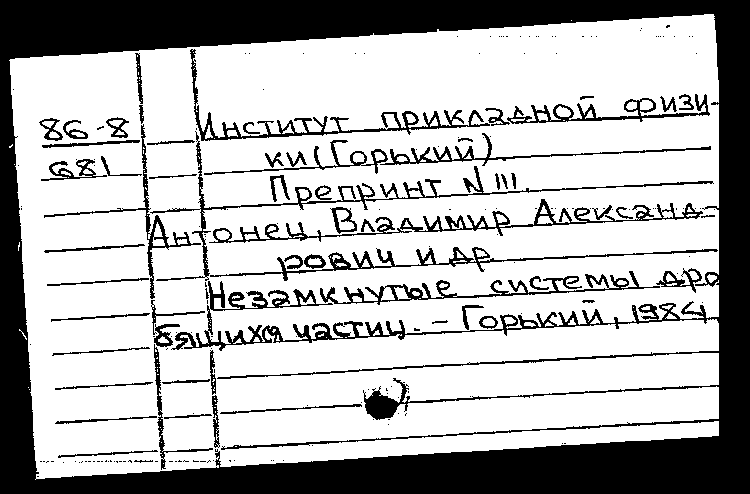 86-8 Институт прикладной физи-
681 ки (Горький).
Препринт N 111.
Антонец, Владимир Александ-
рович и др
Незамкнутые системы дро
бящихся частиц. - Горький, 1984.